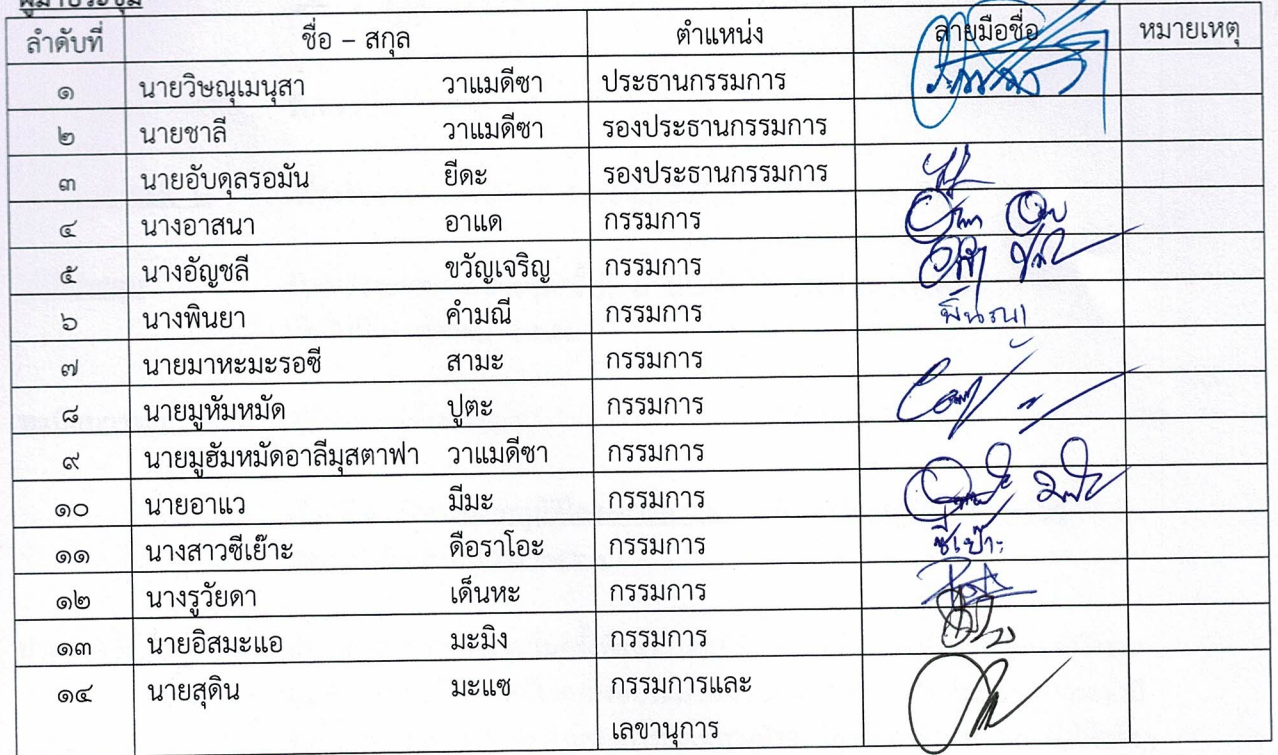 ผู้มาประชุม
ลำดับที่ ชื่อ – สกุล ตำแหน่ง ลายมือชื่อ หมายเหตุ
๑ นายวิษณุเมนุสา วาแมดีซา ประธานกรรมการ
๒ นายชาลี วาแมดีซา รองประธานกรรมการ
๓ นายอับดุลรอมัน ยีดะ รองประธานกรรมการ
๔ นางอาสนา อาแด กรรมการ
๕ นางอัญชลี ขวัญเจริญ กรรมการ
๖ นางพินยา คำมณี กรรมการ
๗ นายมาหะมะรอซี สามะ กรรมการ
๘ นายมูหัมหมัด ปูตะ กรรมการ
๙ นายมูฮัมหมัดอาลีมุสตาฟา วาแมดีซา กรรมการ
๑๐ นายอาแว มีมะ กรรมการ
๑๑ นางสาวซีเย๊าะ ดือราโอะ กรรมการ ซีเย๊าะ
๑๒ นางรูวัยดา เด็นหะ กรรมการ
๑๓ นายอิสมะแอ มะมิง กรรมการ
๑๔ นายสุดิน มะแซ กรรมการและ
เลขานุการ